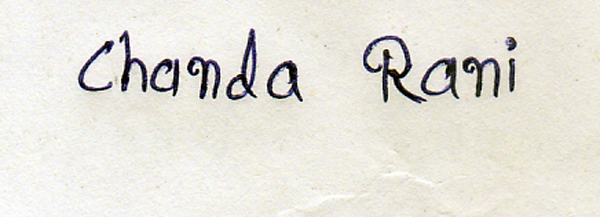 Chanda Rani